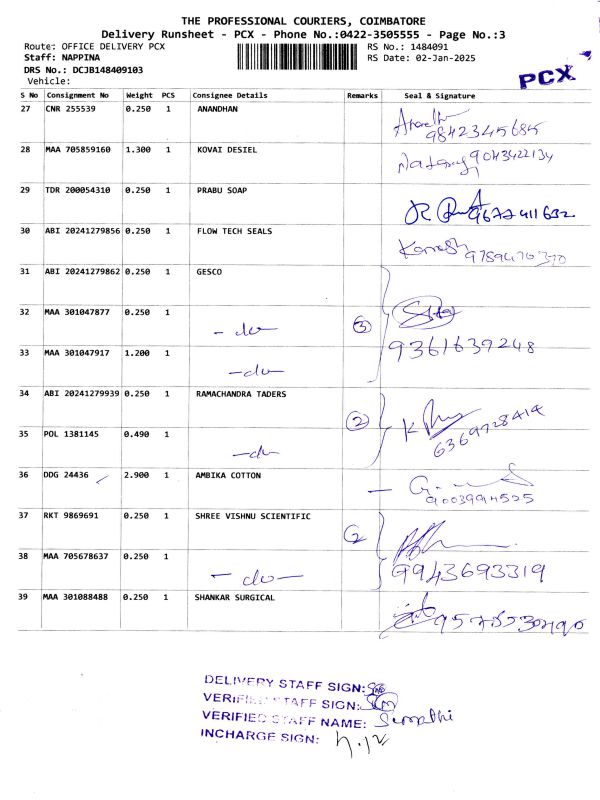 THE PROFESSIONAL COURIERS, COIMBATORE
Delivery Runsheet - PCX - Phone No.:0422-3505555 - Page No.:3
Route: OFFICE DELIVERY PCX RS No.: 1484091
Staff: NAPPINA RS Date: 02-Jan-2025
DRS No.: DCJB148409103
Vehicle:
PCX
S No Consignment No Weight PCS Consignee Details Remarks Seal & Signature
27 CNR 255539 0.250 1 ANANDHAN
9842345685
28 MAA 705859160 1.300 1 KOVAI DESIEL
9043422134
29 TDR 200054310 0.250 1 PRABU SOAP
9677411632
30 ABI 20241279856 0.250 1 FLOW TECH SEALS
31 ABI 20241279862 0.250 1 GESCO
32 MAA 301047877 0.250 1
-do- 3
33 MAA 301047917 1.200 1 9361639248
-do-
34 ABI 20241279939 0.250 1 RAMACHANDRA TADERS
2 6369728414
35 POL 1381145 0.490 1
-do-
36 DDG 24436 2.900 1 AMBIKA COTTON
37 RKT 9869691 0.250 1 SHREE VISHNU SCIENTIFIC
2
38 MAA 705678637 0.250 1
-do- 9943693319
39 MAA 301088488 0.250 1 SHANKAR SURGICAL
DELIVERY STAFF SIGN:
VERIFIED STAFF SIGN:
VERIFIED STAFF NAME:
INCHARGE SIGN: